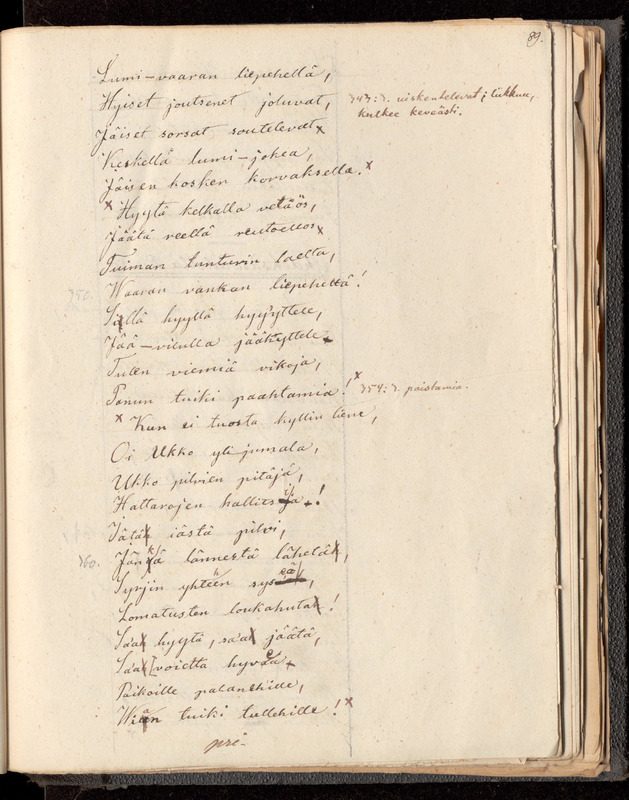 89.
Lumi-vaaran liepehellä,
Hyiset joutsenet joluvat,
Jäiset sorsat soutelevat
Keskellä lumi-jokea,
Jäisen kosken korvaksella.
Hyytä kelkalla vetäös,
Jäätä reellä reutoellos
Tuiman tunturin laelta,
350. Waaran vankan liepeheltä!
Sillä hyyllä hyy'yttele,
Jää-vilulla jäähyttele
Tulen viemiä vikoja,
Panun tuiki paahtamia!
Kun ei tuosta kyllin liene,
Oi Ukko yli jumala,
Ukko pilvien pitäjä,
Hattarojen hallitsija!
Iätäk iästä pilvi,
360. lännestä lähetäk,
Syrjin yhtehen
Lomatusten loukahutak!
Sa'ak hyytä, sa'ak jäätä,
Sa'ak voietta hyveä
Paikoille palanehille,
Wian tuiki tullehille!
pri-
343: ). uiskentelevat; liikkuu,
kulkee keveästi.
354: ). paistamia.